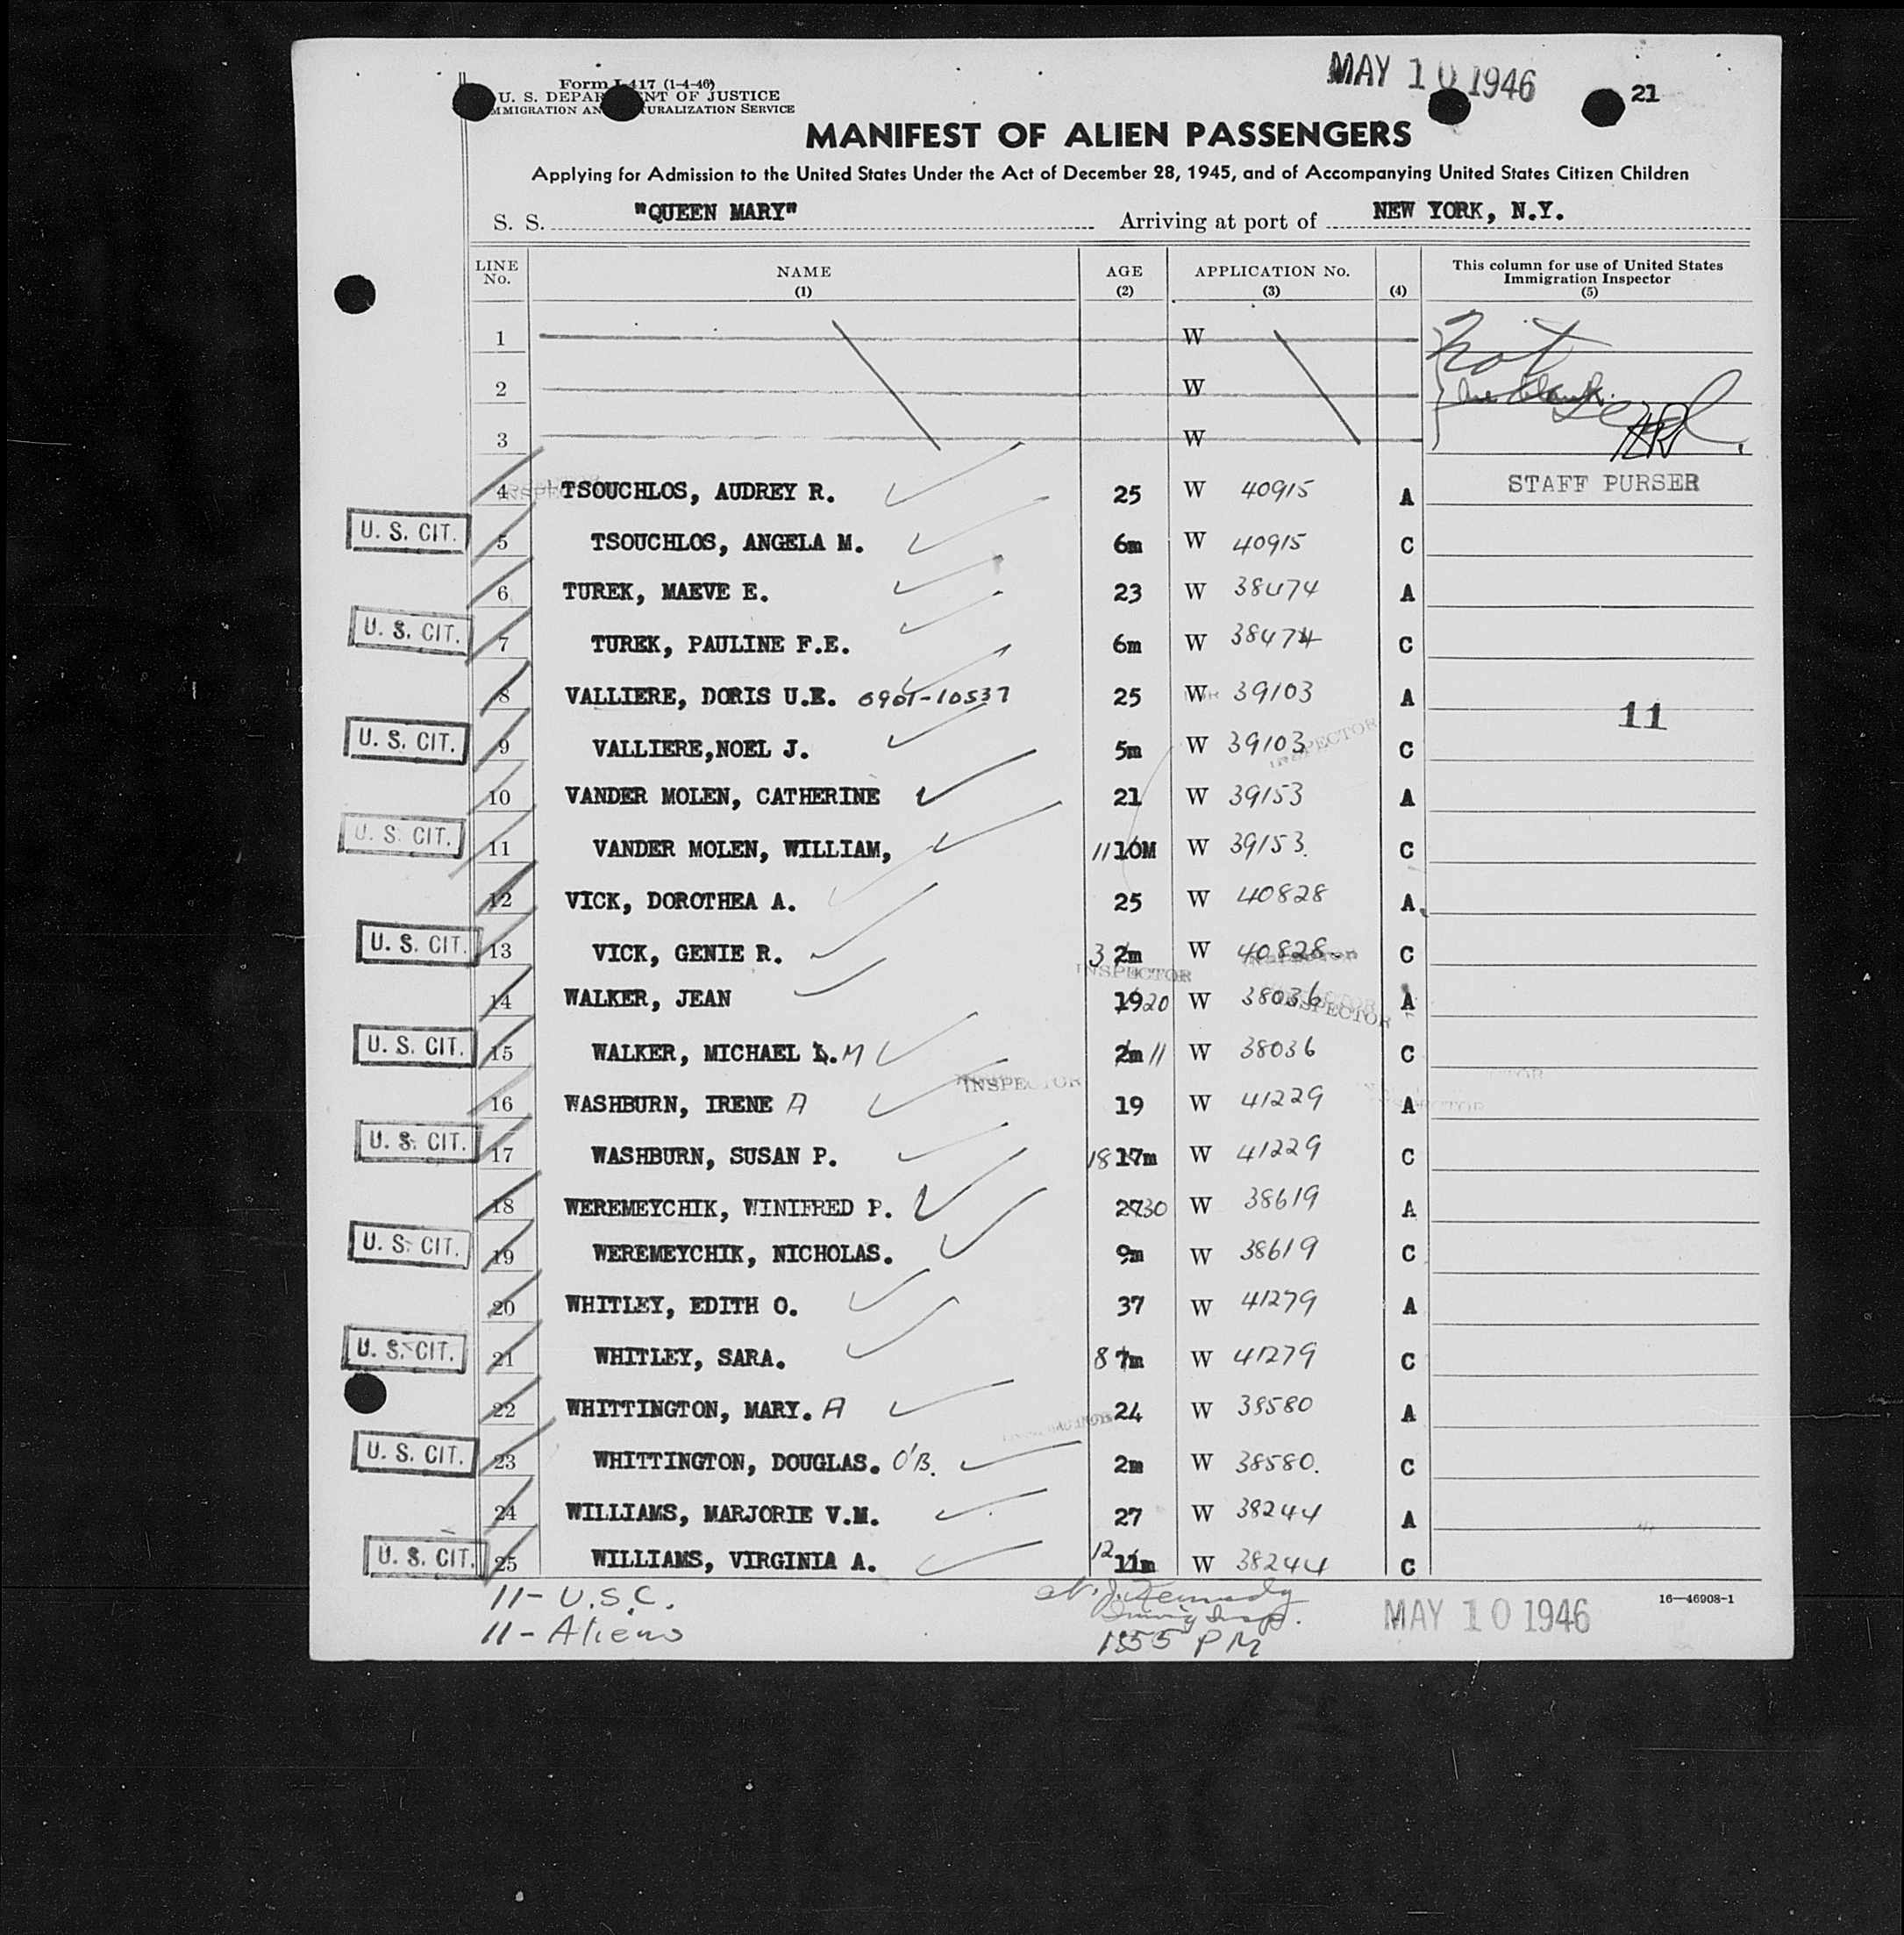 MAY 10 1946
21
Form I-417 (1-4-46)
U. S. DEPARTMENT OF JUSTICE
IMMIGRATION AND NATURALIZATION SERVICE
MANIFEST OF ALIEN PASSENGERS
Applying for Admission to the United States Under the Act of December 28, 1945, and of Accompanying United States Citizen Children
S. S. "QUEEN MARY" Arriving at port of NEW YORK, N.Y.
LINE No. NAME (1) AGE (2) APPLICATION No. (3) (4) This column for use of United States Immigration Inspector (5)
1 W not
2 W
3 W
4 TSOUCHLOS, AUDREY R. 25 W 40915 A STAFF PURSER
U. S. CIT. 5 TSOUCHLOS, ANGELA M. 6m W 40915 C
6 TUREK, MAEVE E. 23 W 38474 A
U. S. CIT. 7 TUREK, PAULINE F.E. 6m W 38474 C
8 VALLIERE, DORIS U.E. 0901-10537 25 W 39103 A 11
U. S. CIT. 9 VALLIERE,NOEL J. 5m W 39103 C
INSPECTOR
10 VANDER MOLEN, CATHERINE 21 W 39153 A
U. S. CIT. 11 VANDER MOLEN, WILLIAM, 11 10M W 39153. C
12 VICK, DOROTHEA A. 25 W 40828 A
U. S. CIT. 13 VICK, GENIE R. 3 2m W 40828 C
INSPECTOR
14 WALKER, JEAN 19 20 W 38036 A
INSPECTOR
U. S. CIT. 15 WALKER, MICHAEL L. M 2m 11 W 38036 C
INSPECTOR
16 WASHBURN, IRENE A 19 W 41229 A
U. S. CIT. 17 WASHBURN, SUSAN P. 18 17m W 41229 C
18 WEREMEYCHIK, WINIFRED P. 27 30 W 38619 A
U. S. CIT. 19 WEREMEYCHIK, NICHOLAS. 9m W 38619 C
20 WHITLEY, EDITH O. 37 W 41279 A
U. S. CIT. 21 WHITLEY, SARA. 8 7m W 41279 C
22 WHITTINGTON, MARY. A 24 W 38580 A
U. S. CIT. 23 WHITTINGTON, DOUGLAS. O'B. 2m W 38580. C
24 WILLIAMS, MARJORIE V.M. 27 W 38244 A
U. S. CIT. 25 WILLIAMS, VIRGINIA A. 12 11m W 38244 C
11 - U.S.C. J. Kennedy 16—46908-1
Immig Insp. MAY 10 1946
11 - Aliens 155 PM